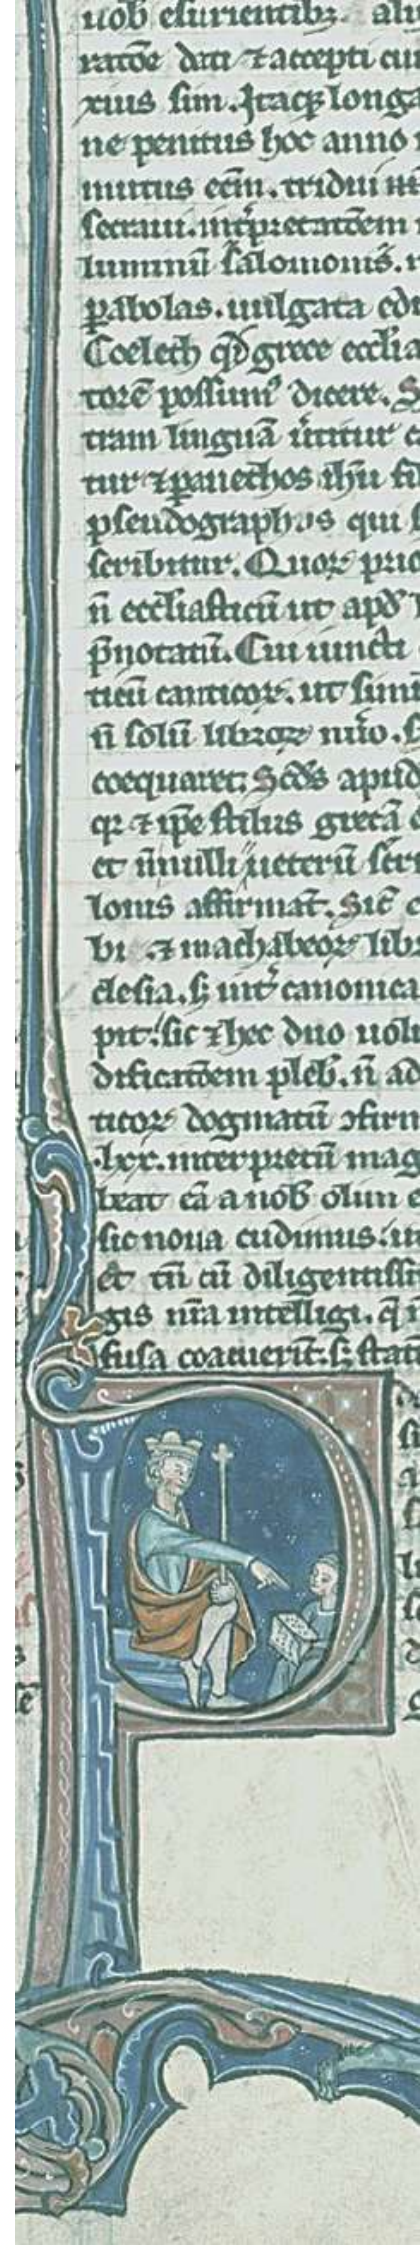 uob esurientibz. ali
ratoe dati ⁊ accepti cui
xius sim. Itaq; longa
ne penitus hoc anno
mutus eem. tridui
secraui. int̾pretatoem
luminu salomonis.
pabolas. uulgata edi
Coelech qd grece ecclia
tore possum⁹ dicere. S
tram lingua uertitur c
tur ⁊ panethos ihu fil
pseudographus qui s
scribitur. Quoꝝ prio
n eccliasticu ut apd
pnotatu. Cui iuncti
ticu canticoꝝ. ut simi
n solu libroꝝ nuo. s
coequaret; Scds apud
qꝛ ⁊ ipe stilus greca
et nnulli ueteru scri
lonis affirmat. Sic
bi ⁊ machabeoꝝ lib
clesia. s; int̾ canonica
pit: sic ⁊ hec duo uolu
dificatoem pleb. n ad
ticoꝝ dogmatu ɔfirm
.lxx. interpretu mag
beat ea a nob olim
sic noua cudimus. ut
et tn cu diligentissi
gis nra intelligi. q
fusa coacuerit: s; stati